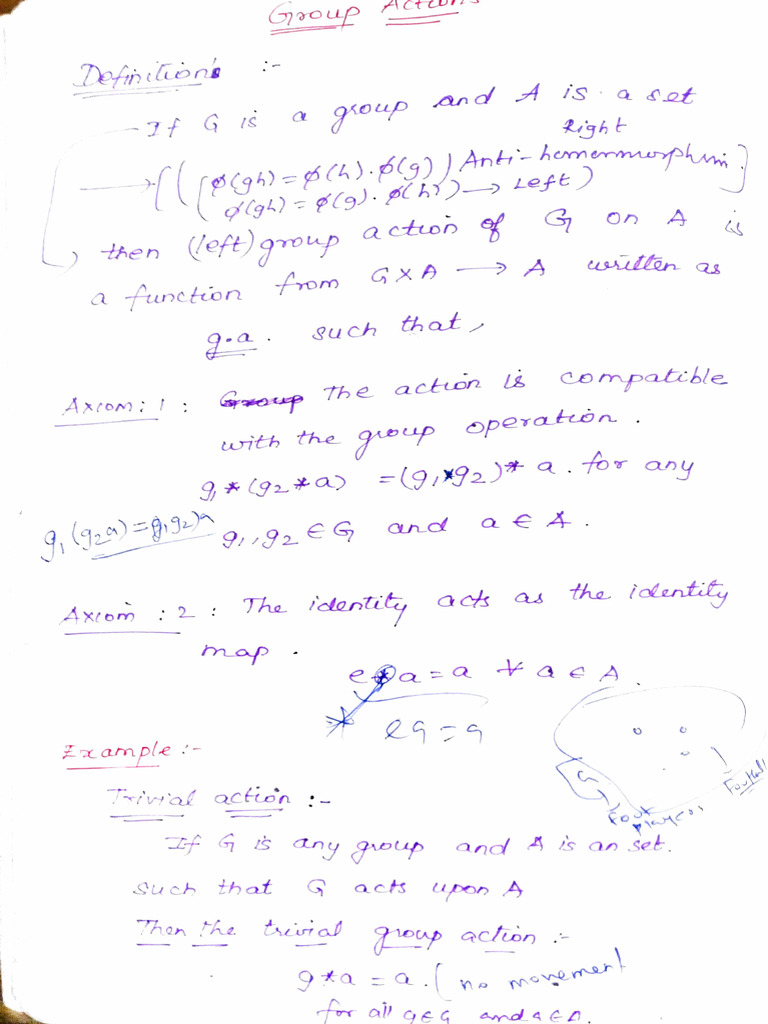 Group Actions
Definition's :-
If G is a group and A is a set
Right
[((φ(gh) = φ(h).φ(g)) Anti-homermorphim]
(φ(gh) = φ(g).φ(h)) → Left)
then (left) group action of G on A is
a function from G×A → A written as
g.a. such that,
Axiom: 1 : Group The action is compatible
with the group operation.
g₁*(g₂*a) = (g₁*g₂)*a. for any
g₁(g₂a)=(g₁g₂)a g₁,g₂ ∈ G and a ∈ A.
Axiom : 2 : The identity acts as the identity
map.
e*a = a ∀ a ∈ A.
* ea = a
Example :-
G
Trivial action :-
If G is any group and A is an set.
such that G acts upon A
Then the trivial group action :-
g*a = a. (no movement
for all g∈G and a∈A.